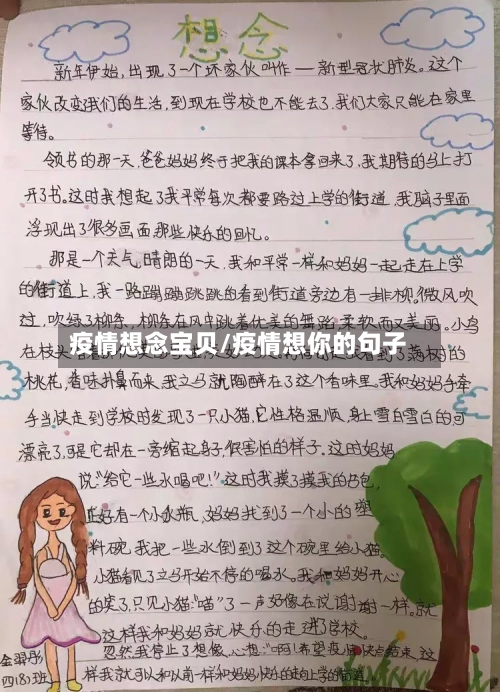 想念
新年伊始,出现了一个坏家伙叫作一新型冠状肺炎。这个
家伙改变我们的生活,到现在学校也不能去了,我们大家只能在家里
等待。
领书的那一天,爸爸妈妈终于把我的课本拿回来了,我期待的马上打
开了书。这时我想起了我平常每次都要路过上学的街道,我脑子里面
浮现出了很多画面那些快乐的回忆。
那是一个天气晴朗的一天,我和平常一样和妈妈一起走在上学
的街道上,我一路蹦蹦跳跳的看到街道旁边有一排柳。微风吹
过,吹绿了柳条,柳条在风中跳着优美的舞蹈,柔软而又美丽。小鸟
在枝头
疫情想念宝贝/疫情想你的句子
看到了满树的
桃花,香味扑鼻而来,我立马就陶醉在了这个香味里。我和妈妈手牵
手当快走到学校时发现了一只小猫,它性格温顺,身上雪白雪白的可
漂亮了,可是它却在一旁缩起身子,很害怕的样子。这时妈妈
说“给它一些水喝吧!”这时我摸了摸我的书包,
正好有一个小水瓶,妈妈找到了一个小的塑
料碗,我把一些水倒到了这个碗里给小猫,
小猫看见了立马开始不停的吸水。我和妈妈开心
的笑了,只见小猫“喵”了一声好像在说谢谢一样。就
这样我和妈妈就快乐的走进了学校。
忽然我停止了想像,心想:“啊!希望疫情快点结束,这
样我就可以和从前一样和妈妈快乐的走向上学的街道
金羿彤
四(8)班